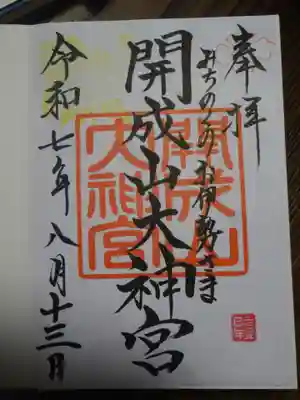 奉拝
みちのくのお伊勢さま
開成山大神宮
令和七年八月十三日
開成山
大神宮